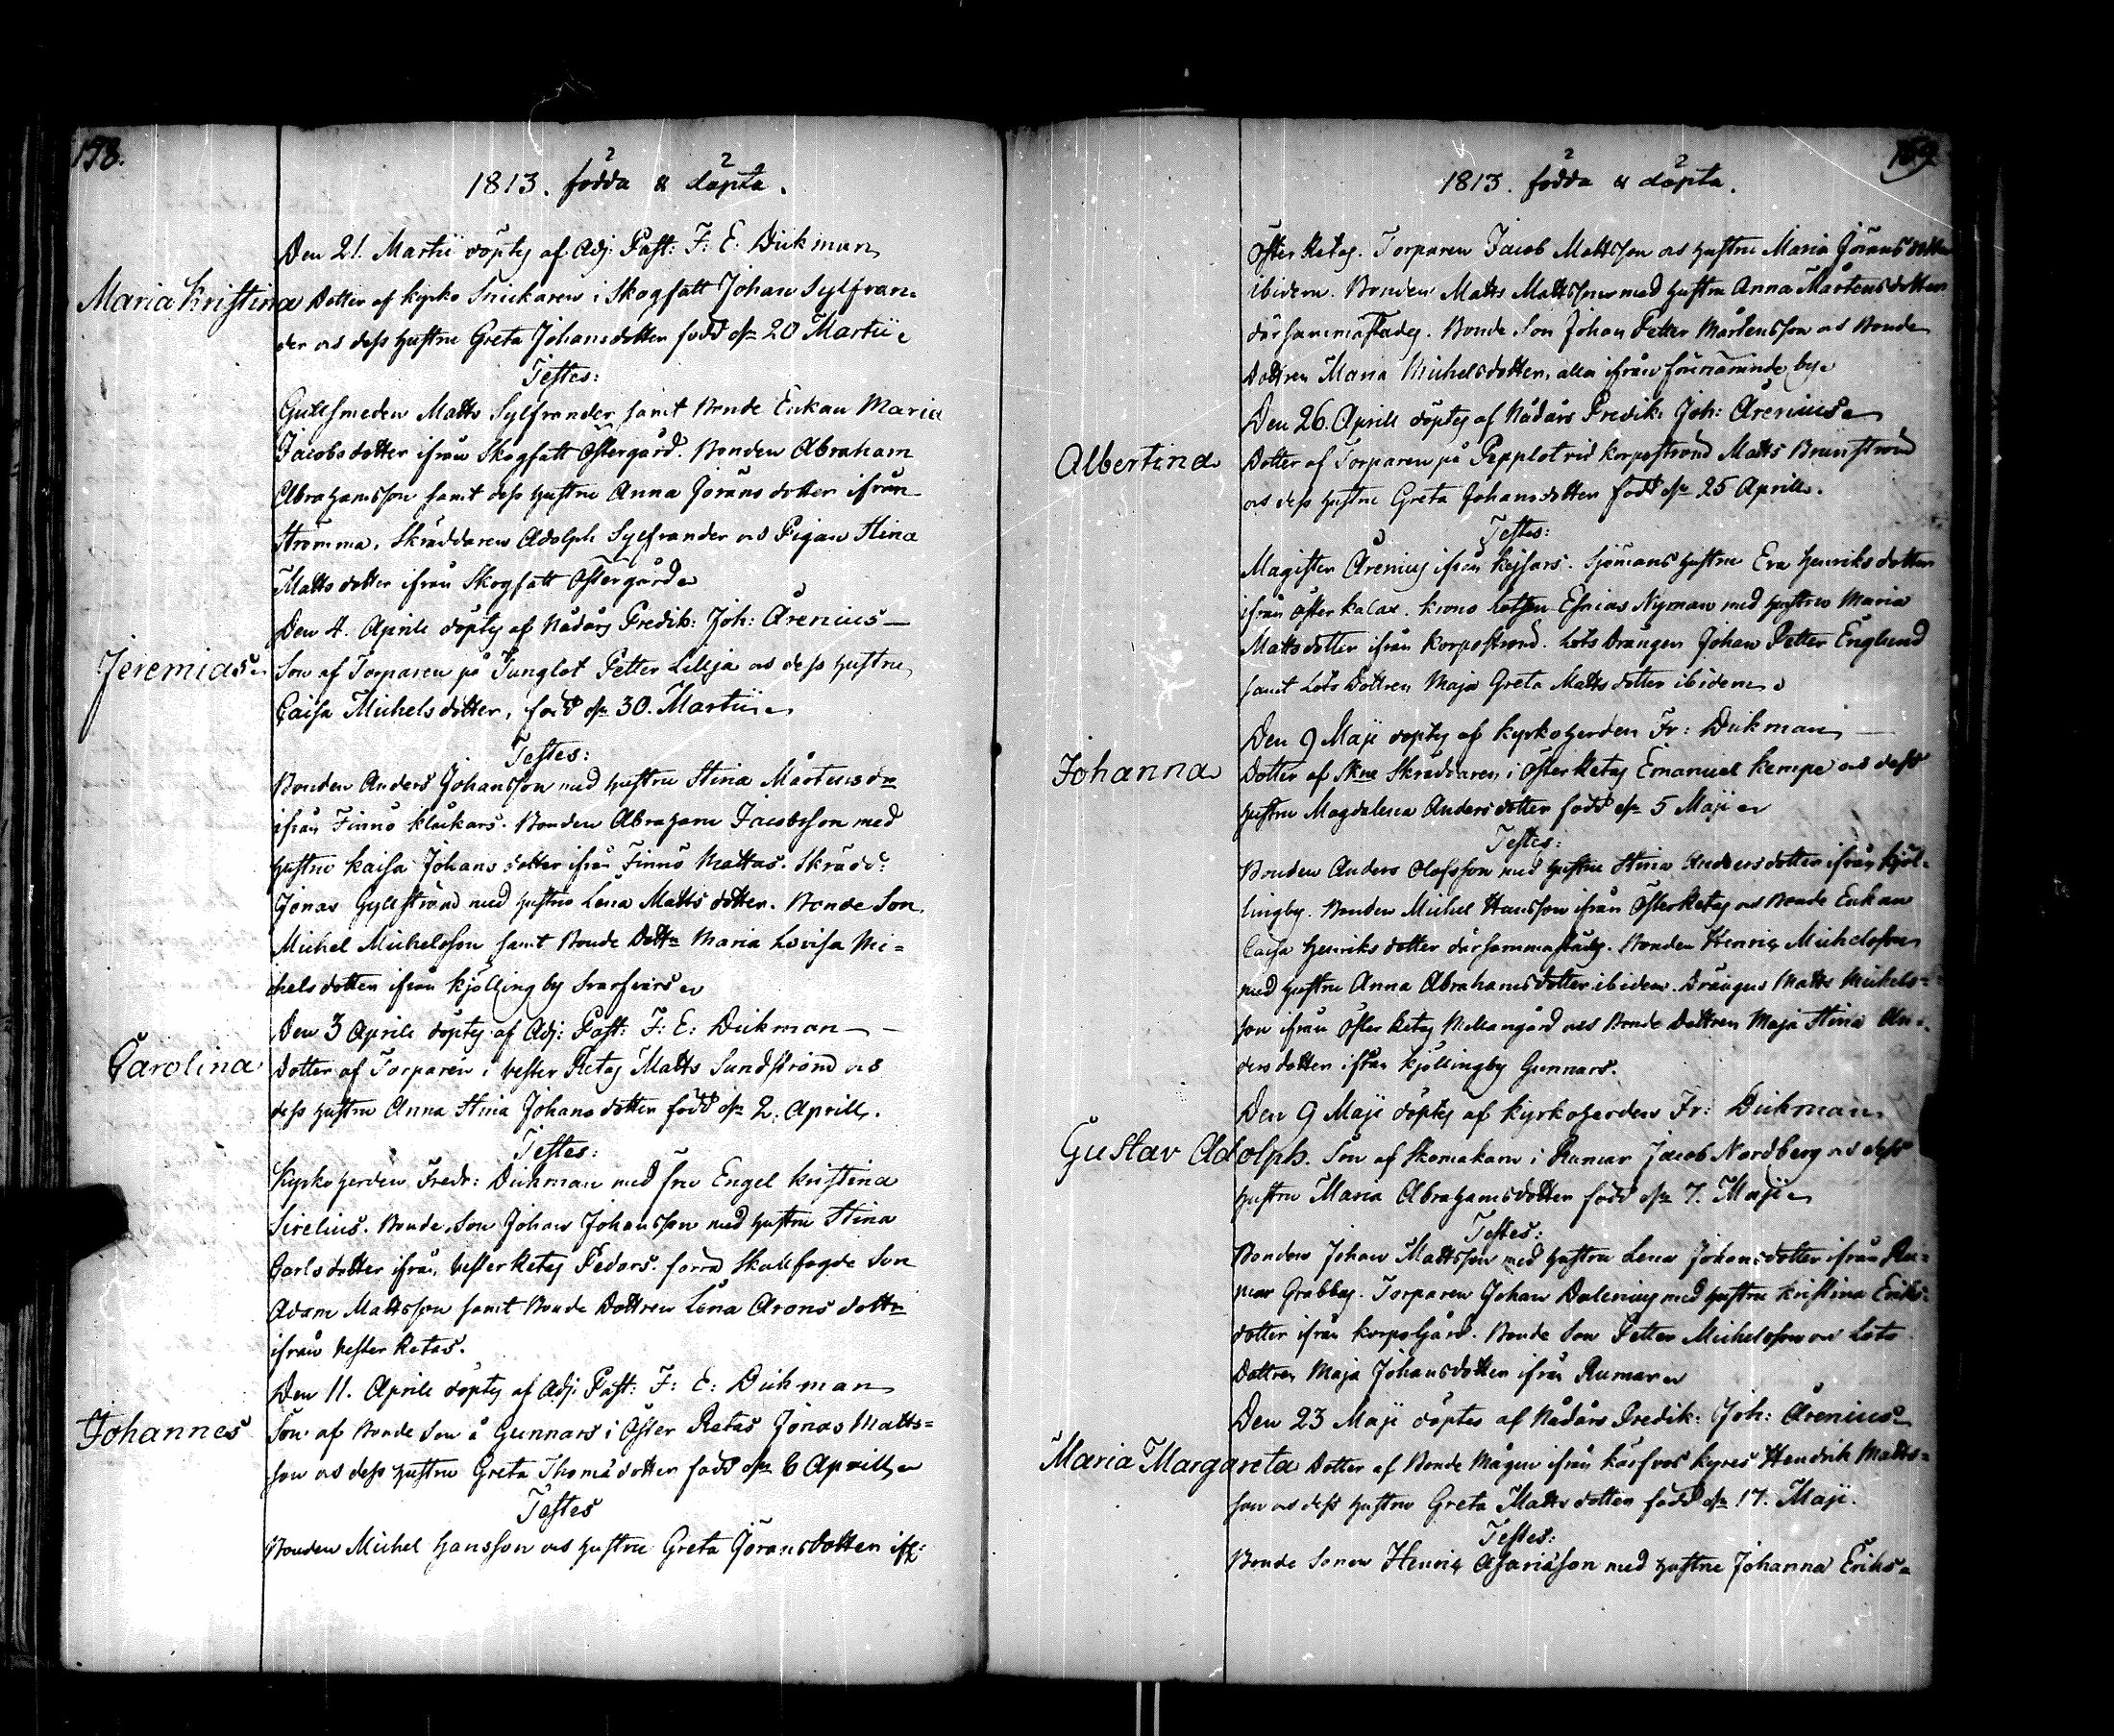 158.
1813. födda & döpta.
Den 21. Martii döptes af Adj: Past: F: E: Dickman
Maria Kristina Dotter af kyrko Snickaren i Skogsatt Johan Sylfran-
der ock dess hustru Greta Johansdotter född dn 20 Martii
Testes:
Gullsmeden Matts Sylfrander samt Bonde Enkan Maria
Jacobsdotter ifrån Skogsatt Östergård. Bonden Abraham
Abrahamsson samt dess hustru Anna Jörans dotter ifrån
Strömma. Skräddaren Adolph Sylfrander ock Pigan Stina
Matts dotter ifrån Skogsatt Östergård
Den 4. Aprill döptes af Nådårs Predik: Joh: Årenius
Jeremias. Son af Torparen på Junglot Petter Lillja ock dess hustru
Caisa Michelsdotter, född dn 30. Martii
Testes:
Bonden Anders Johansson med hustru Stina Mårtensdr
ifrån Finnö klåckars. Bonden Abraham Jacobsson med
hustru Kaisa Johans dotter ifrån Finnö Mattas. Skrädd:
Jonas Gyllström med hustru Lena Matts dotter. Bonde Son
Michel Michelsson samt Bonde Dottr Maria Lovisa Mi-
chelsdotter ifrån Kjöllingby Svarfvars
Den 3 Aprill döptes af Adj: Past: F: E: Dickman
Carolina Dotter af Torparen i Vester Retas Matts Sundström ock
dess hustru Anna Stina Johans dotter född dn 2. Aprill.
Testes:
Kyrko herden Fredr: Dickman med fru Engel Kristina
Sirelius. Bonde Son Johan Johansson med hustru Stina
Carlsdotter ifrån Vester Retas Pedars. förra Skallfogde Son
Adam Mattsson samt Bonde Dottren Lena Arons dottr
ifrån Vester Retas.
Den 11. Aprill döptes af Adj: Past: F: E: Dickman
Johannes Son af Bonde Son å Gunnars i Öster Retas Jonas Matts-
son ock dess hustru Greta Thomä dotter född dn 6 Aprill
Testes
Bonden Michel Hansson ock hustru Greta Göransdotter ifr:
159.
1813. födda & döpta.
Öster Retas. Torparen Jacob Mattsson ock hustru Maria Jöransdotter
ibidem. Bonden Matts Mattsson med hustru Anna Mårtensdotter
därsammastädes. Bonde Son Johan Petter Mårtensson ock Bonde
Dottren Maria Michelsdotter, alla ifrån förenämnde by
Den 26. Aprill döptes af Nådårs Predik: Joh: Årenius
Albertina Dotter af Torparen på Pepplot vid Korpoström Matts Brunström
ock dess hustru Greta Johansdotter född dn 25 Aprill.
Testes:
Magister Årenius ifrån Kejsars. Sjömans hustru Eva Henriks dotter
ifrån Öster Kalax. Krono Lotsen Esaias Nyman med hustru Maria
Mattsdotter ifrån Korpoström. Lots Drängen Johan Petter Englund
samt Lots Dottren Maja Greta Matts dotter ibidem
Den 9 Maji döptes af Kyrkoherden Fr: Dickman
Johanna Dotter af Skne Skräddaren i Öster Retas Emanuel Kempe ock dess
hustru Magdalena Anders dotter född dn 5 Maji
Testes:
Bonden Anders Olofsson med hustru Stina Andersdotter ifrån Kjöl-
lingby. Bonden Michel Hansson ifrån Öster Retas ock Bonde Enkan
Caisa Henriks dotter därsammastädes. Bonden Henric Michelsson
med hustru Anna Abrahamsdotter ibidem. Drängen Matts Michels-
son ifrån Öster Retas Mellangård ock Bonde Dottren Maja Stina An-
dersdotter ifrån Kjöllingby Gunnars.
Den 9 Maji döptes af Kyrkoherden Fr: Dickman
Gustav Adolph. Son af Skomakarn i Rumar Jacob Nordberg ock dess
hustru Maria Abrahamsdotter född dn 7. Maji
Testes:
Bonden Johan Mattsson med hustru Lena Johansdotter ifrån Ru-
mar Grabbas. Torparen Johan Dalenius med hustru Kristina Eriks-
dotter ifrån Korpogård. Bonde Son Petter Michelsson ock Lots
Dottren Maja Johansdotter ifrån Rumar
Den 23 Maji döptes af Nådårs Predik: Joh: Årenius
Maria Margareta Dotter af Bonde Mågen ifrån Kårfvos Kyres Hendrik Matts-
son ock dess hustru Greta Matts dotter född dn 17. Maji.
Testes:
Bonde Sonen Henric Asariäson med hustru Johanna Eriks-